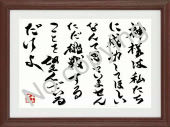 神様は私たち
に成功してほしい
なんて思っていません
ただ挑戦する
ことを望んでいる
だけよ